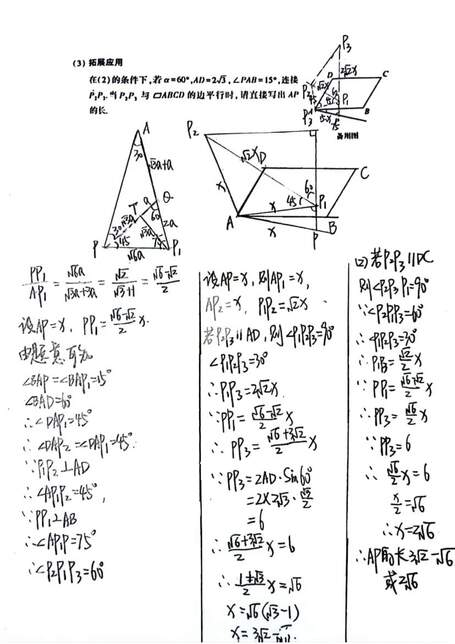 (3) 拓展应用
在(2)的条件下,若α=60°,AD=2√3,∠PAB=15°,连接
P₂P₃.当P₂P₃与▱ABCD的边平行时,请直接写出AP
的长.
P₃
D
2√2x
C
P₂
P₁
B
备用图
A
30
√3a+a
T
a
Q
60
2a
30
√3a
45
P
√6a
P₁
P₂
√2x
D
C
x
60
45
P₁
A
x
x
B
P
PP₁/AP₁ = √6a/(√3a+3a) = √2/(√3+1) = (√6-√2)/2
设AP=x, PP₁=(√6-√2)/2 x.
由题意可知
∠BAP=∠BAP₁=15°
∠BAD=60°
∴∠DAP₁=45°
∴∠DAP₂=∠DAP₁=45°.
∵P₁P₂⊥AD
∴∠AP₁P₂=45°,
∵PP₁⊥AB
∴∠AP₁P=75°
∴∠P₂P₁P₃=60°
设AP=x, 则AP₁=x,
AP₂=x, P₁P₂=√2x
若P₂P₃∥AD, 则∠P₁P₂P₃=90°
∠P₁P₃P₂=30°
∴P₁P₃=2√2x
∵PP₁=(√6-√2)/2 x
∴PP₃=(√6+3√2)/2 x
∵PP₃=2AD·Sin60°
=2×2√3·√3/2
=6
∴(√6+3√2)/2 x=6
∴(1+√3)/2 x=√6
x=√6(√3-1)
x=3√2-√6.
(2) 若P₂P₃∥DC
则∠P₂P₃P₁=90°
∵∠P₂P₁P₃=60°
∴∠P₁P₂P₃=30°
∴P₁P₃=√2/2 x
∵PP₁=(√6-√2)/2 x
∴PP₃=√6/2 x
∵PP₃=6
∴√6/2 x=6
x/2=√6
∴x=2√6
∴AP的长3√2-√6
或2√6